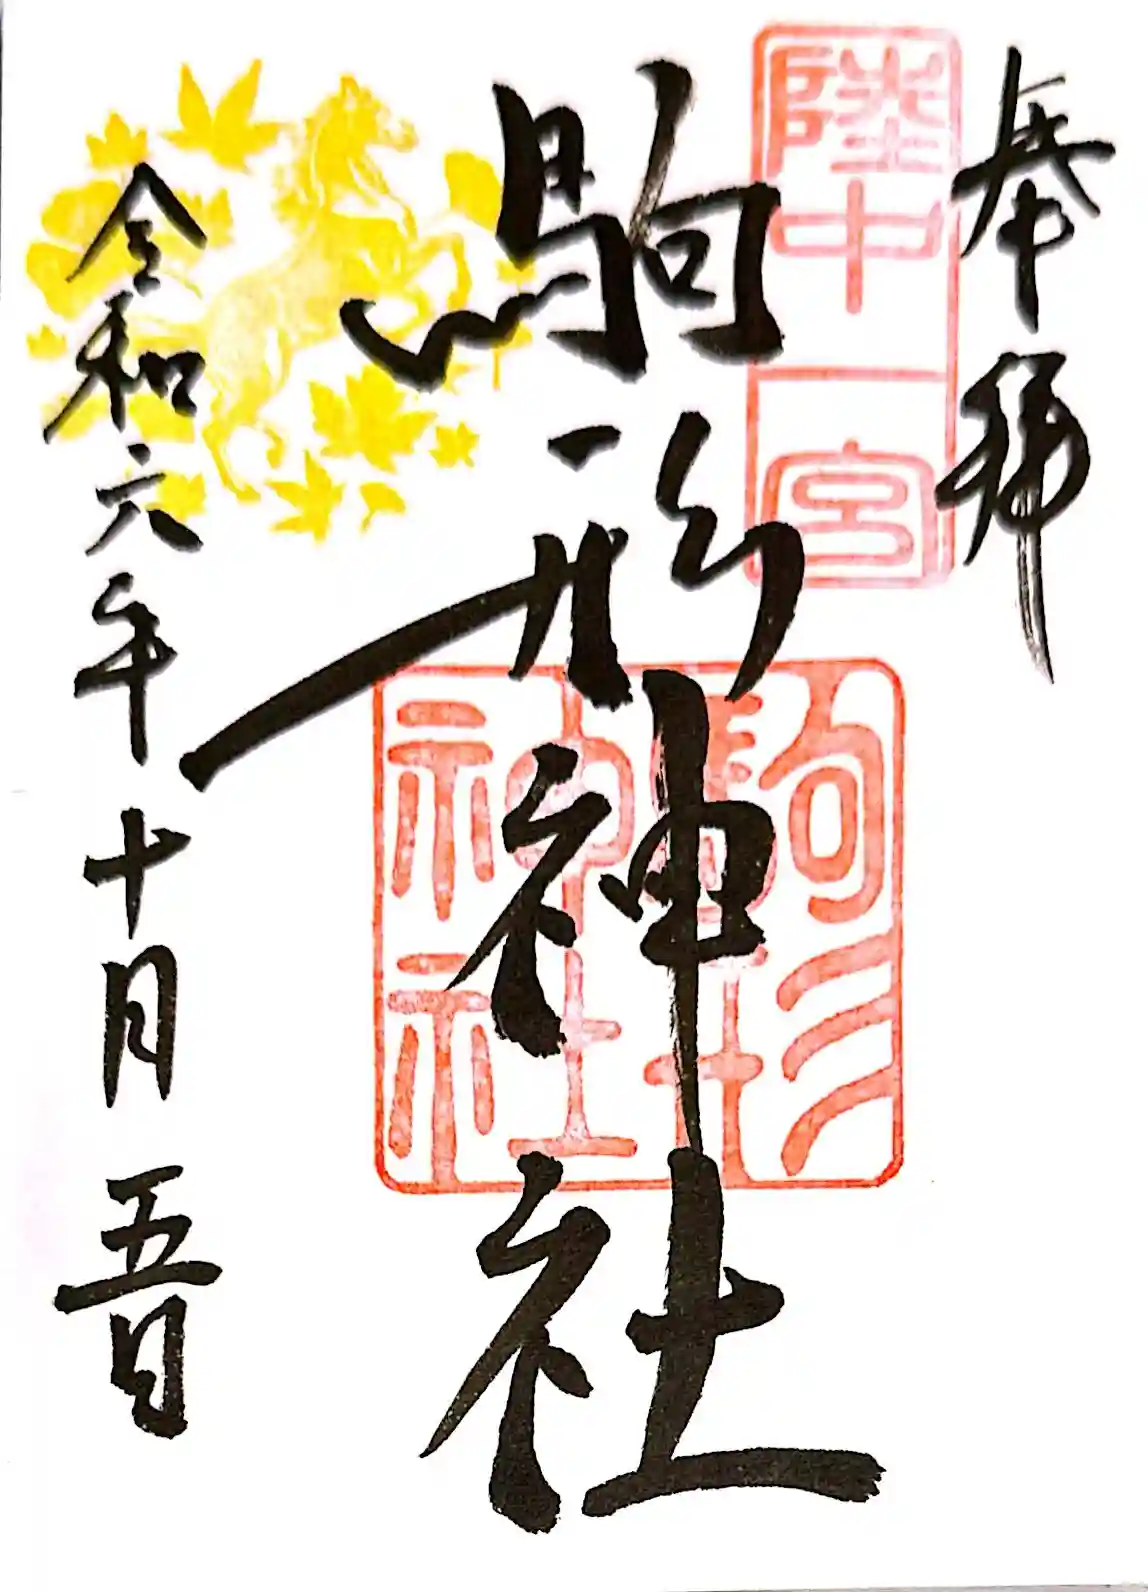 奉拝
陸中一宮
駒形神社
駒形神社
令和六年十月五日